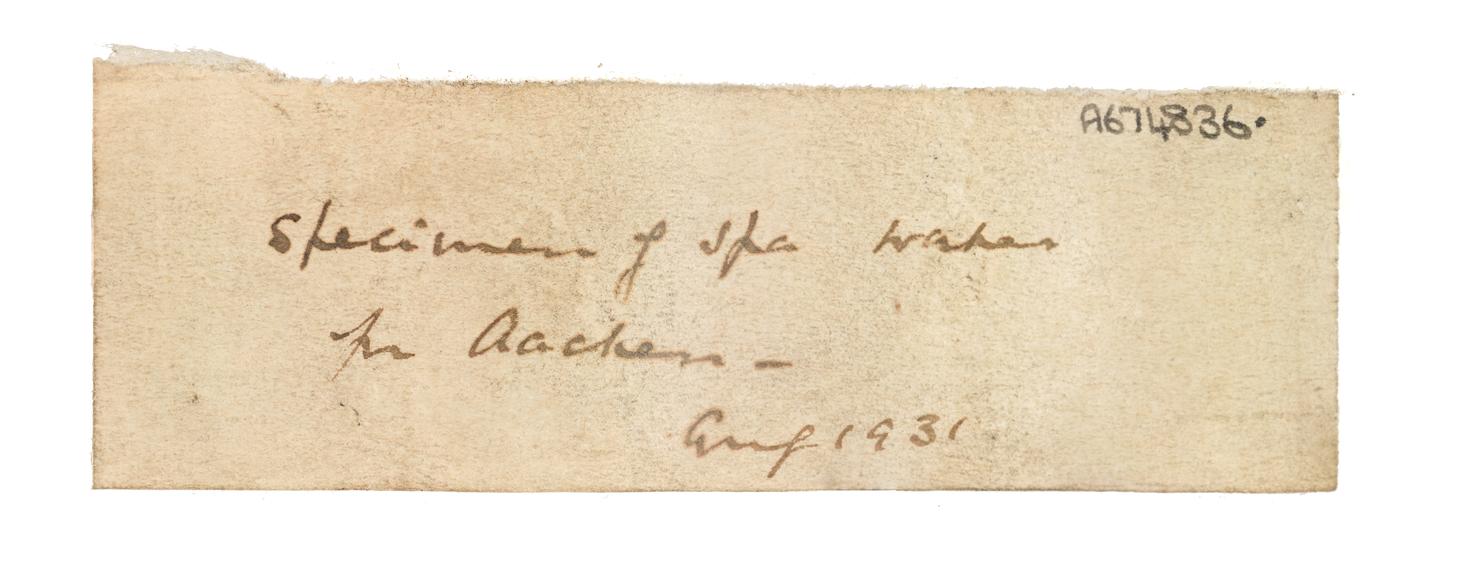 A674836.
Specimen of spa water
fr Aachen -
Aug 1931